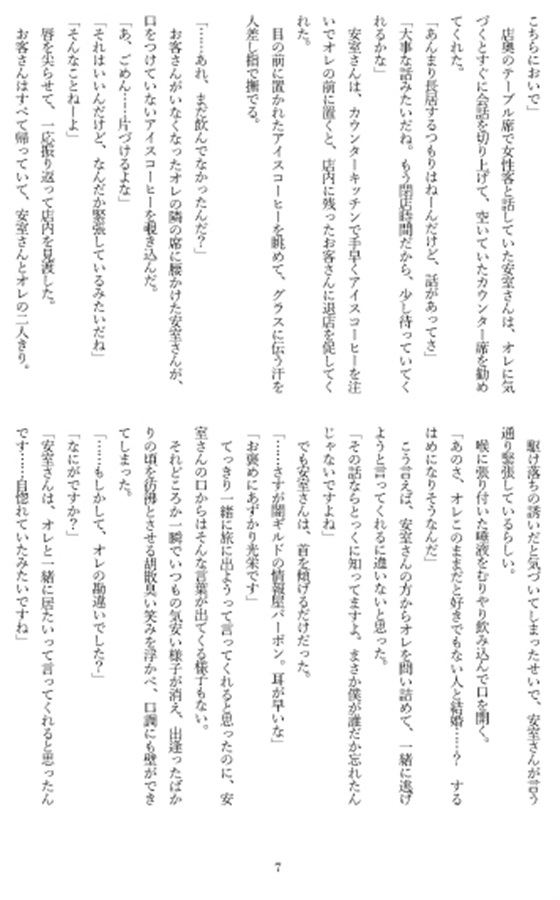 こちらにおいで」
　店奥のテーブル席で女性客と話していた安室さんは、オレに気
づくとすぐに会話を切り上げて、空いていたカウンター席を勧め
てくれた。
「あんまり長居するつもりはねーんだけど、話があってさ」
「大事な話みたいだね。もう閉店時間だから、少し待っていてく
れるかな」
　安室さんは、カウンターキッチンで手早くアイスコーヒーを注
いでオレの前に置くと、店内に残ったお客さんに退店を促してく
れた。
　目の前に置かれたアイスコーヒーを眺めて、グラスに伝う汗を
人差し指で撫でる。
「……あれ、まだ飲んでなかったんだ？」
　お客さんがいなくなったオレの隣の席に腰かけた安室さんが、
口をつけていないアイスコーヒーを覗き込んだ。
「あ、ごめん……片づけるよな」
「それはいいんだけど、なんだか緊張しているみたいだね」
「そんなことねーよ」
　唇を尖らせて、一応振り返って店内を見渡した。
　お客さんはすべて帰っていて、安室さんとオレの二人きり。
　駆け落ちの誘いだと気づいてしまったせいで、安室さんが言う
通り緊張しているらしい。
　喉に張り付いた唾液をむりやり飲み込んで口を開く。
「あのさ、オレこのままだと好きでもない人と結婚……？　する
はめになりそうなんだ」
　こう言えば、安室さんの方からオレを問い詰めて、一緒に逃げ
ようと言ってくれるに違いないと思った。
「その話ならとっくに知ってますよ。まさか僕が誰だか忘れたん
じゃないですよね」
　でも安室さんは、首を傾げるだけだった。
「……さすが闇ギルドの情報屋バーボン。耳が早いな」
「お褒めにあずかり光栄です」
　てっきり一緒に旅に出ようって言ってくれると思ったのに、安
室さんの口からはそんな言葉が出てくる様子もない。
　それどころか一瞬でいつもの気安い様子が消え、出逢ったばか
りの頃を彷彿とさせる胡散臭い笑みを浮かべ、口調にも壁ができ
てしまった。
「……もしかして、オレの勘違いでした？」
「なにがですか？」
「安室さんは、オレと一緒に居たいって言ってくれると思ったん
です……自惚れていたみたいですね」
7